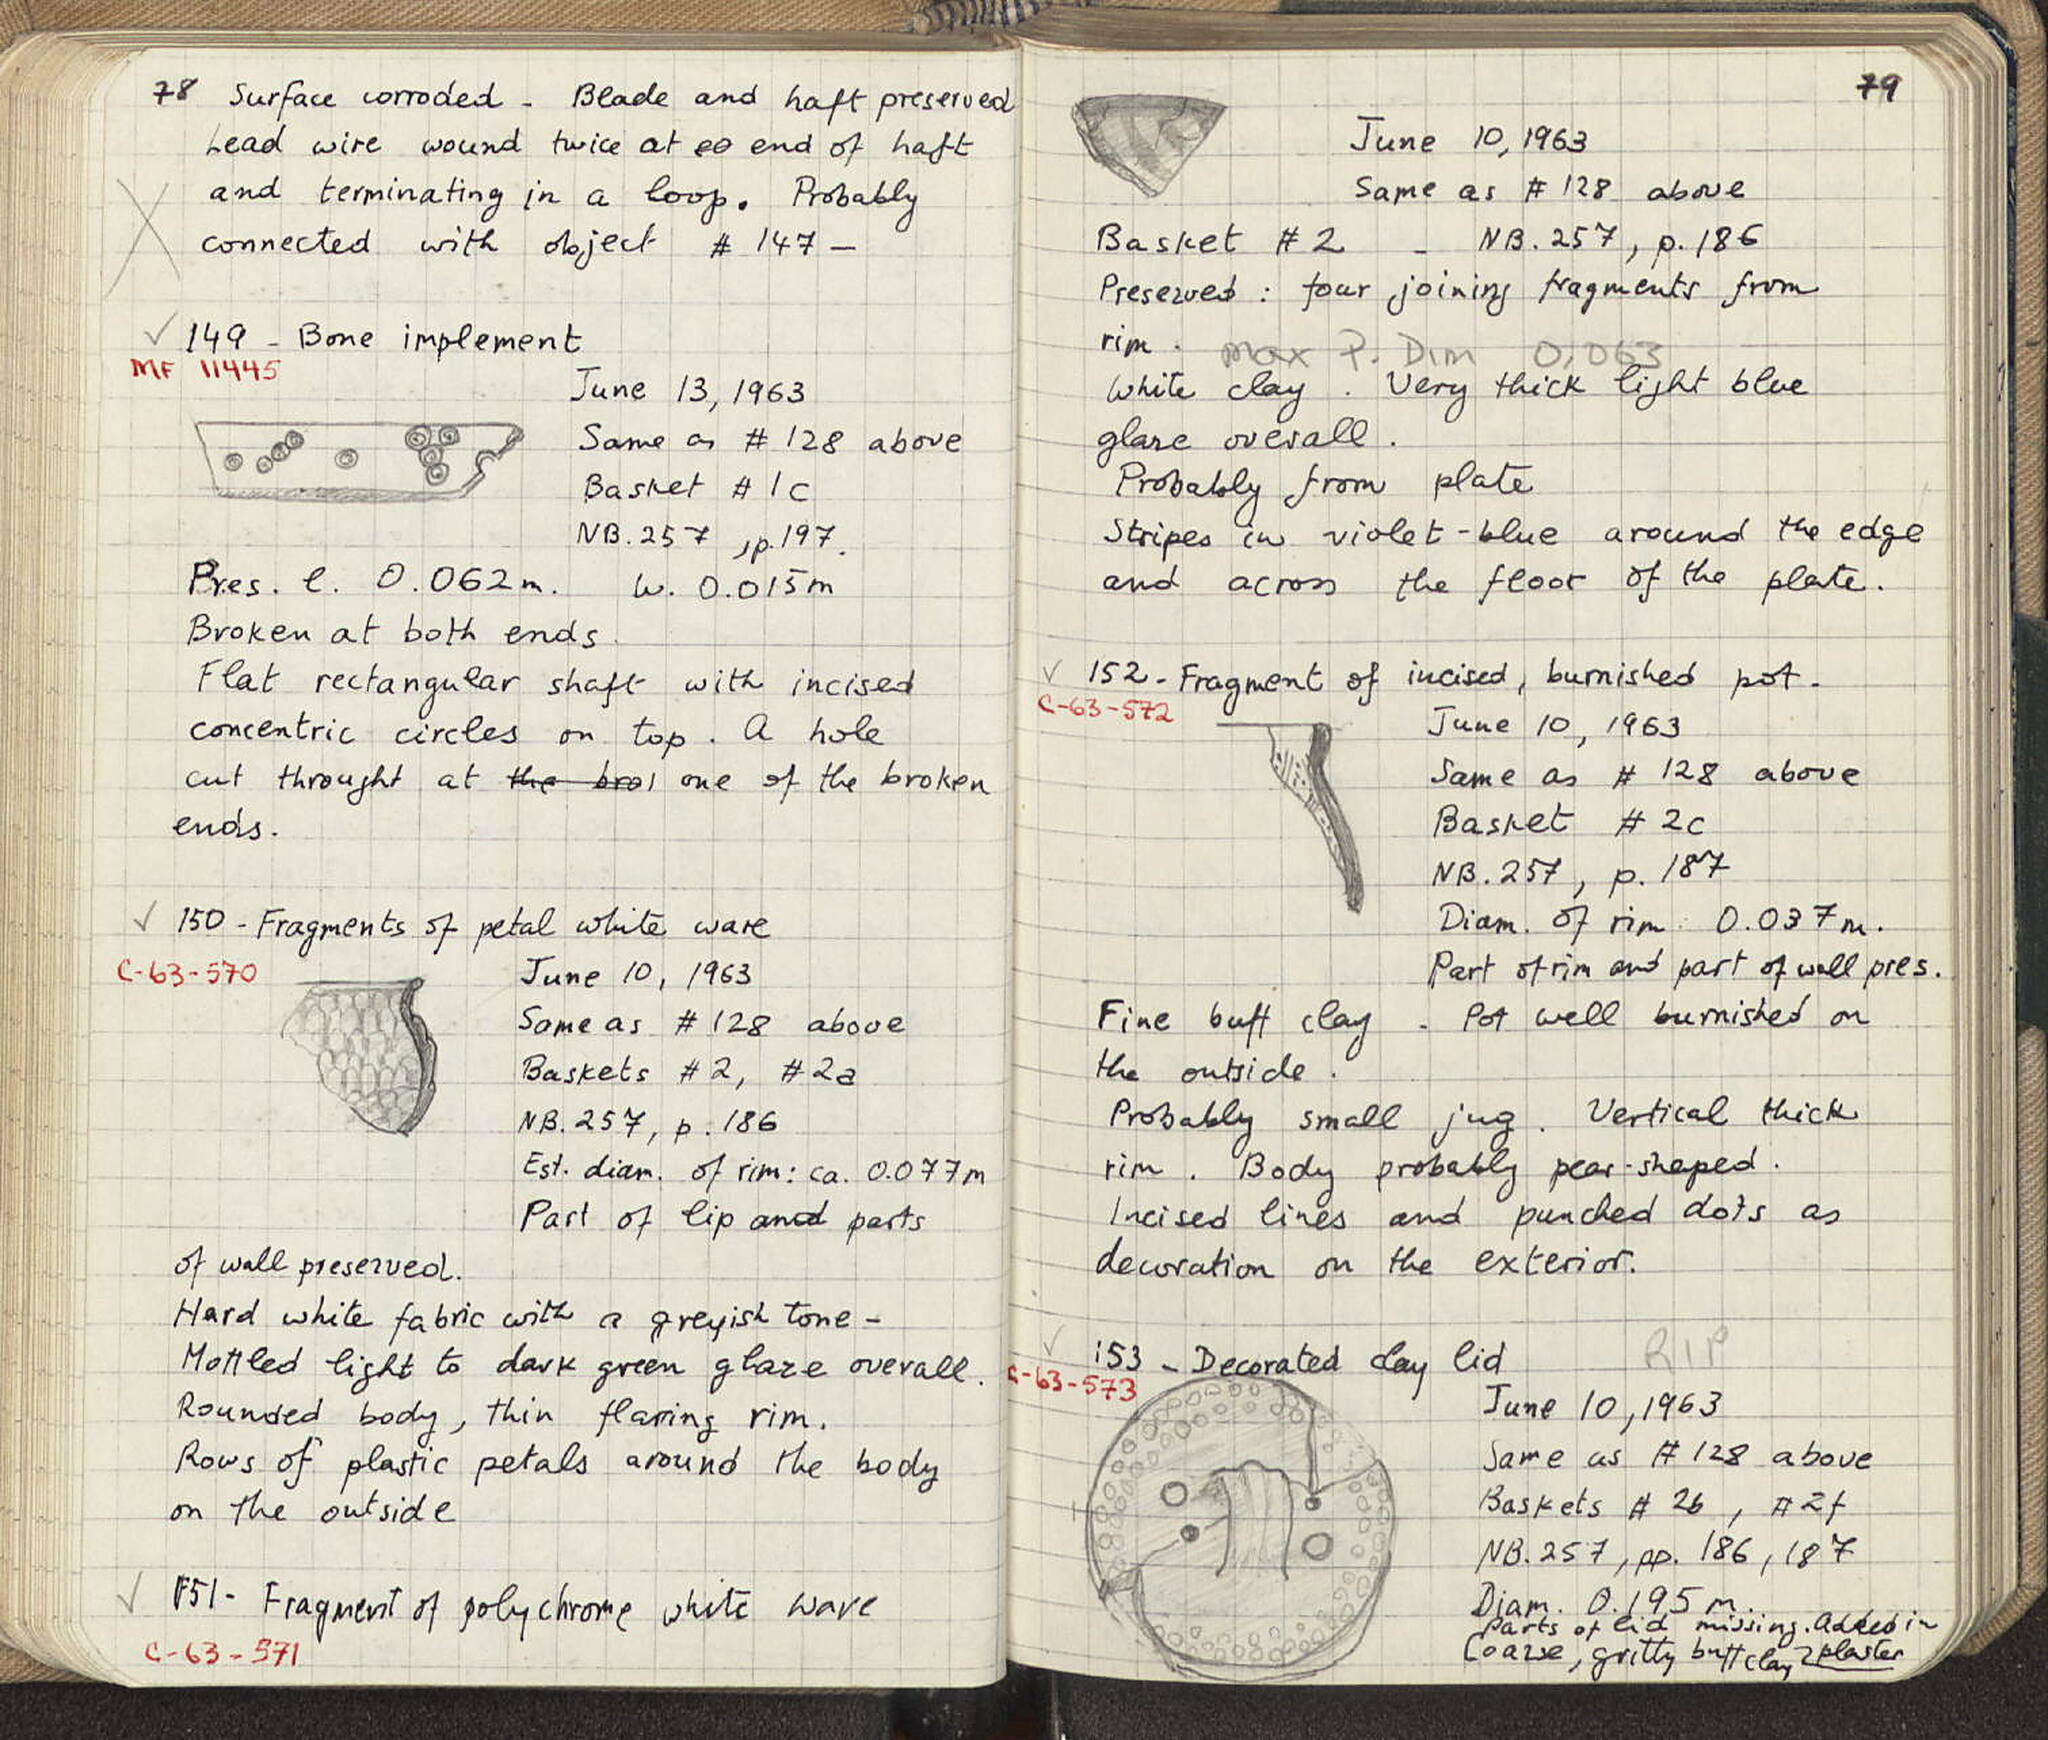 78 Surface corroded - Blade and haft preserved
Lead wire wound twice at end of haft
and terminating in a loop. Probably
connected with object # 147 -
✓ 149 - Bone implement
MF 11445
June 13, 1963
Same as # 128 above
Basket # 1c
NB. 257, p. 197.
Pres. l. 0.062m. W. 0.015m
Broken at both ends.
Flat rectangular shaft with incised
concentric circles on top. A hole
cut throught at the bro one of the broken
ends.
✓ 150 - Fragments of petal white ware
C-63-570
June 10, 1963
Same as # 128 above
Baskets # 2, # 2a
NB. 257, p. 186
Est. diam. of rim: ca. 0.077m
Part of lip and parts
of wall preserved.
Hard white fabric with a greyish tone -
Mottled light to dark green glaze overall.
Rounded body, thin flaring rim.
Rows of plastic petals around the body
on the outside
✓ 151 - Fragment of polychrome white ware
C-63-571
79
June 10, 1963
Same as # 128 above
Basket # 2 - NB. 257, p. 186
Preserved: four joining fragments from
rim. max P. Dim 0,063
White clay. Very thick light blue
glaze overall.
Probably from plate
Stripes in violet-blue around the edge
and across the floor of the plate.
✓ 152 - Fragment of incised, burnished pot.
C-63-572
June 10, 1963
Same as # 128 above
Basket # 2c
NB. 257, p. 187
Diam. of rim: 0.037m.
Part of rim and part of wall pres.
Fine buff clay - Pot well burnished on
the outside.
Probably small jug. Vertical thick
rim. Body probably pear-shaped.
Incised lines and punched dots as
decoration on the exterior.
✓ 153 - Decorated clay lid RIP
C-63-573
June 10, 1963
Same as # 128 above
Baskets # 2b, # 2f
NB. 257, pp. 186, 187
Diam. 0.195 m.
Parts of lid missing. Added in
Coarse, gritty buff clay plaster